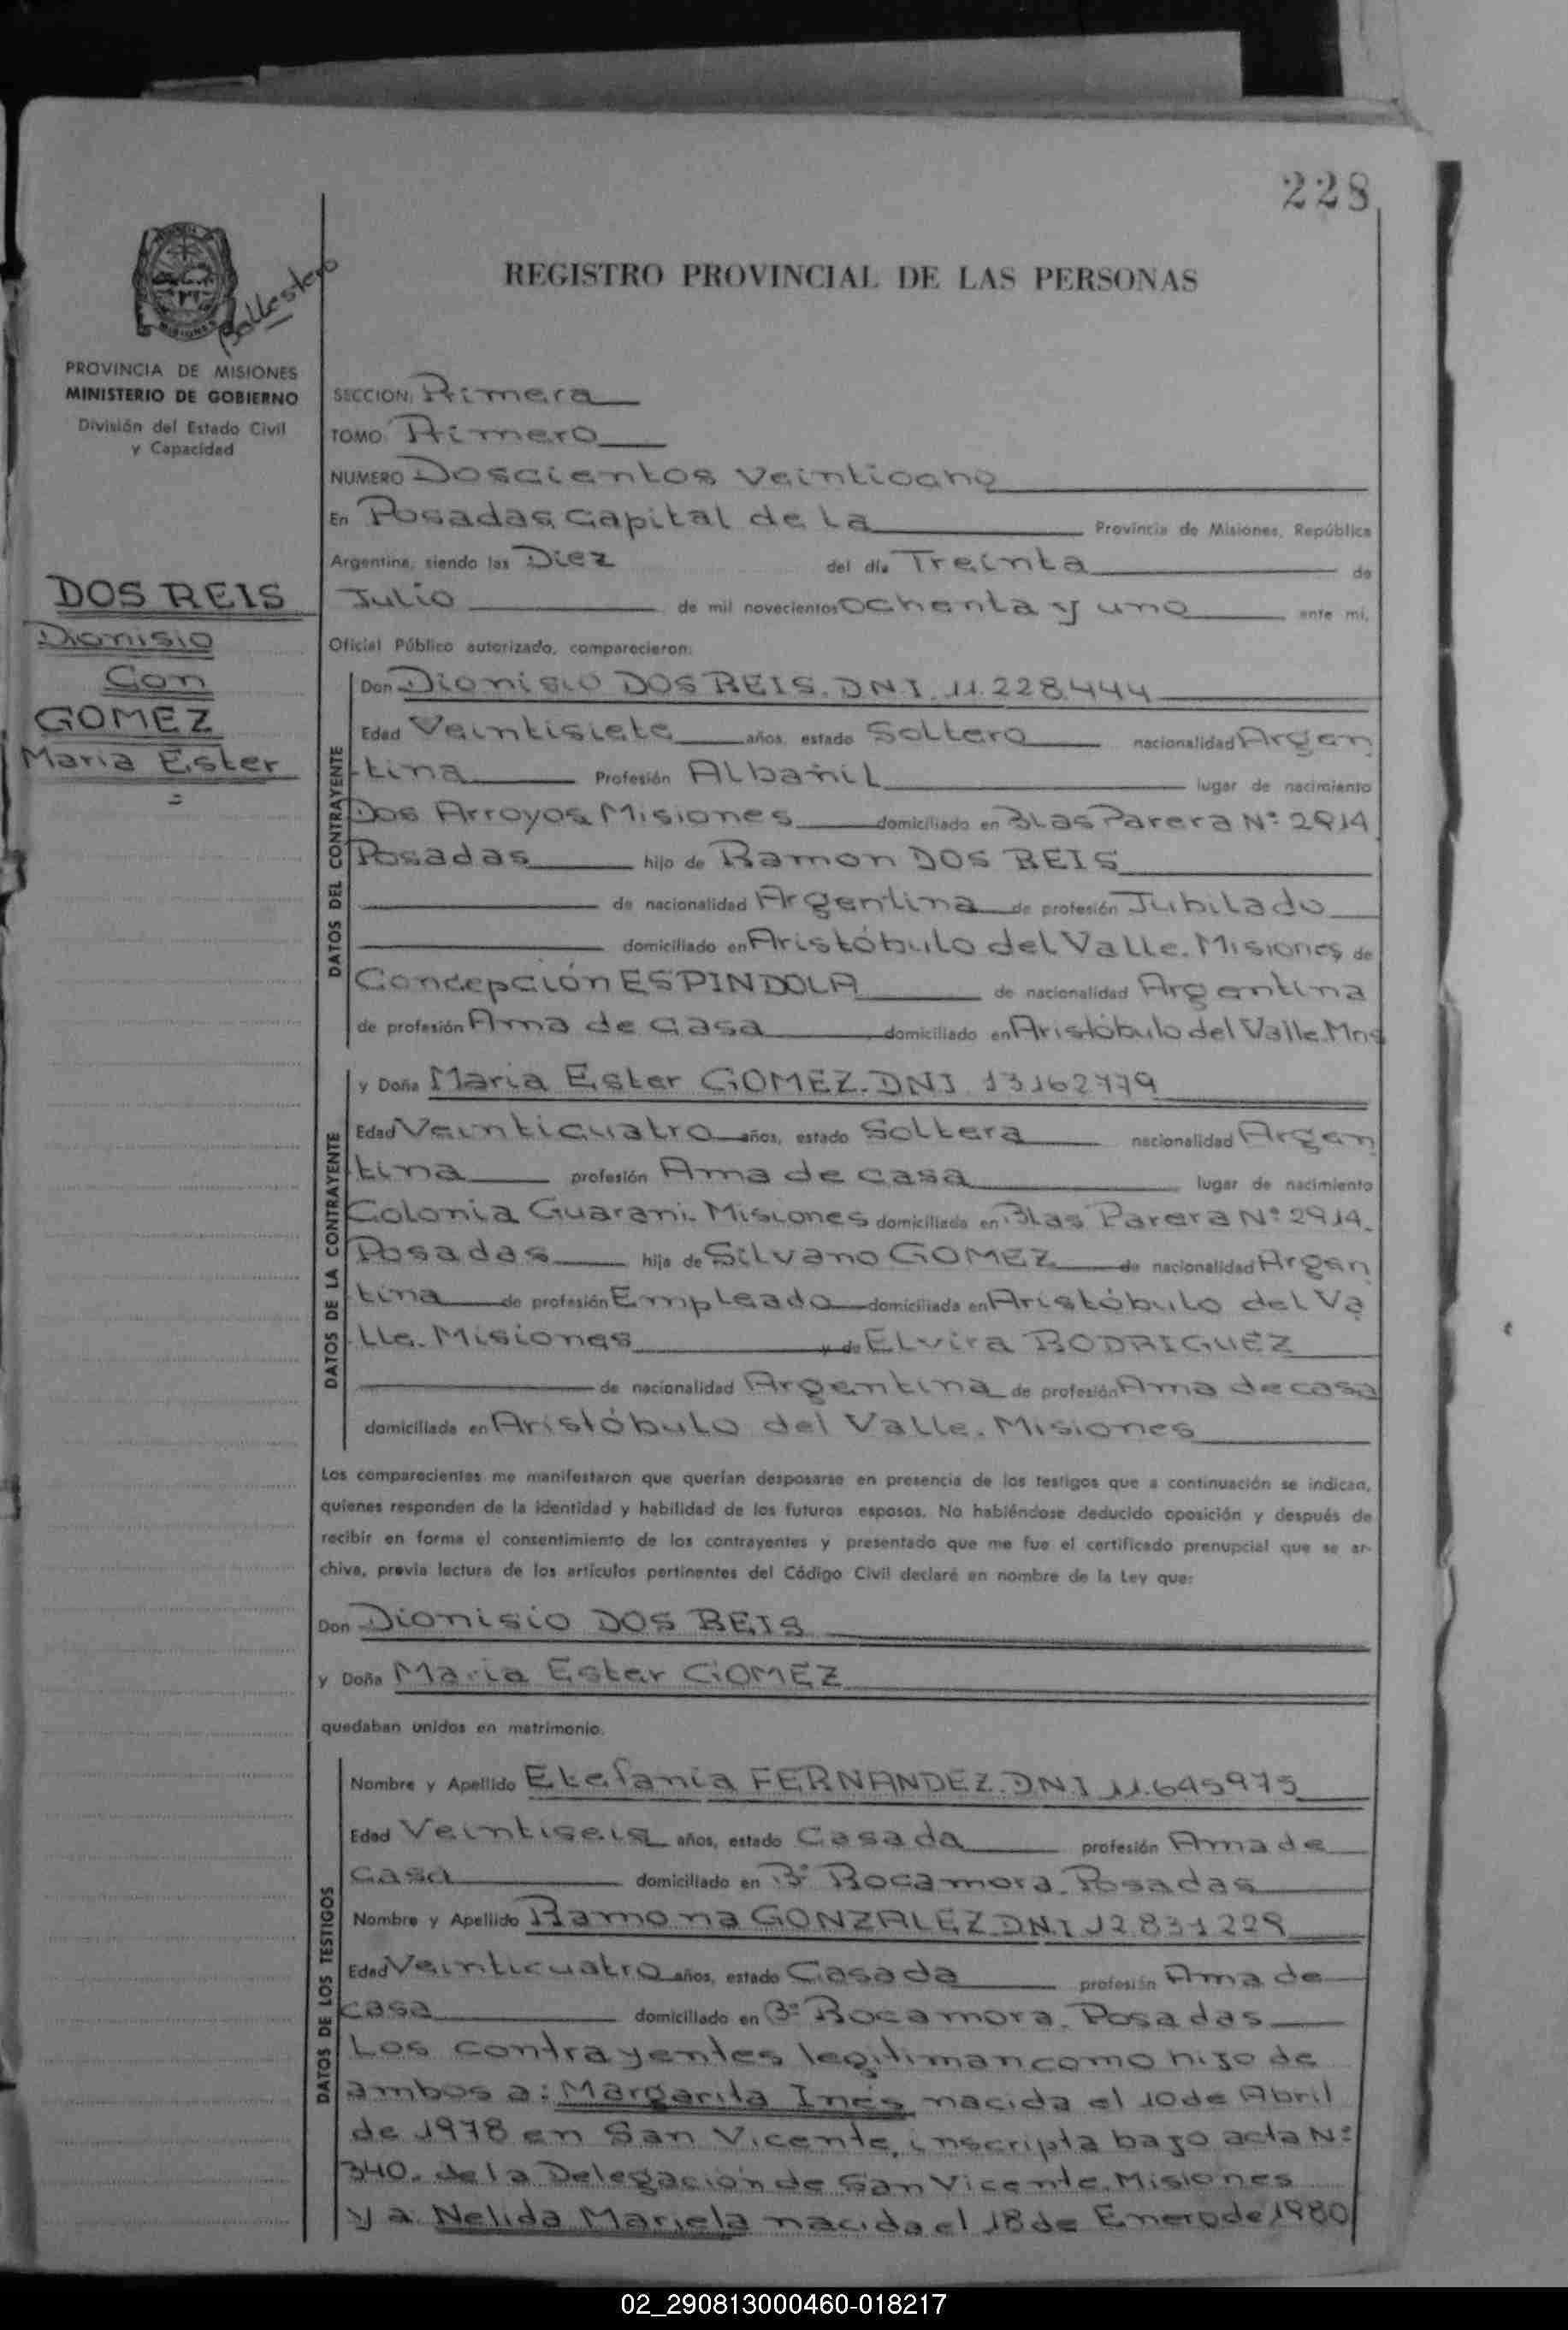 228
Ballestero
REGISTRO PROVINCIAL DE LAS PERSONAS
PROVINCIA DE MISIONES
MINISTERIO DE GOBIERNO
División del Estado Civil
y Capacidad
DOS REIS
Dionisio
Con
GOMEZ
Maria Ester
SECCION: Primera
TOMO: Primero
NUMERO Doscientos Veintiocho
En Posadas, Capital de La Provincia de Misiones, República
Argentina, siendo las Diez del día Treinta de
Julio de mil novecientos Ochenta y uno ante mi,
Oficial Público autorizado, comparecieron:
DATOS DEL CONTRAYENTE
Don Dionisio DOS REIS. DNI. 11.228.444
Edad Veintisiete años, estado Soltero nacionalidad Argen
tina Profesión Albañil lugar de nacimiento
Dos Arroyos, Misiones domiciliado en Blas Parera Nº 2914
Posadas hijo de Ramon DOS REIS
de nacionalidad Argentina de profesión Jubilado
domiciliado en Aristóbulo del Valle. Misiones de
Concepción ESPINDOLA de nacionalidad Argentina
de profesión Ama de casa domiciliado en Aristóbulo del Valle. Mns
DATOS DE LA CONTRAYENTE
y Doña Maria Ester GOMEZ. DNI 13162779
Edad Veinticuatro años, estado Soltera nacionalidad Argen
tina profesión Ama de casa lugar de nacimiento
Colonia Guarani. Misiones domiciliada en Blas Parera Nº 2914.
Posadas hija de Silvano GOMEZ de nacionalidad Argen
tina de profesión Empleado domiciliada en Aristóbulo del Va
lle. Misiones y de Elvira RODRIGUEZ
de nacionalidad Argentina de profesión Ama de casa
domiciliada en Aristóbulo del Valle. Misiones
Los comparecientes me manifestaron que querían desposarse en presencia de los testigos que a continuación se indican,
quienes responden de la identidad y habilidad de los futuros esposos. No habiéndose deducido oposición y después de
recibir en forma el consentimiento de los contrayentes y presentado que me fue el certificado prenupcial que se ar-
chiva, previa lectura de los artículos pertinentes del Código Civil declaré en nombre de la Ley que:
Don Dionisio DOS REIS
y Doña Maria Ester GOMEZ
quedaban unidos en matrimonio.
DATOS DE LOS TESTIGOS
Nombre y Apellido Etefania FERNANDEZ. DNI 11.645975
Edad Veintiseis años, estado Casada profesión Ama de
casa domiciliado en Bº Rocamora. Posadas
Nombre y Apellido Ramona GONZALEZ DNI 12.831229
Edad Veinticuatro años, estado Casada profesión Ama de
casa domiciliado en Bº Rocamora. Posadas
Los contrayentes legitiman como hijo de
ambos a: Margarita Inés nacida el 10 de Abril
de 1978 en San Vicente, inscripta bajo acta Nº
340. de la Delegación de San Vicente. Misiones
y a Nelida Mariela nacida el 18 de Enero de 1980
02_290813000460-018217